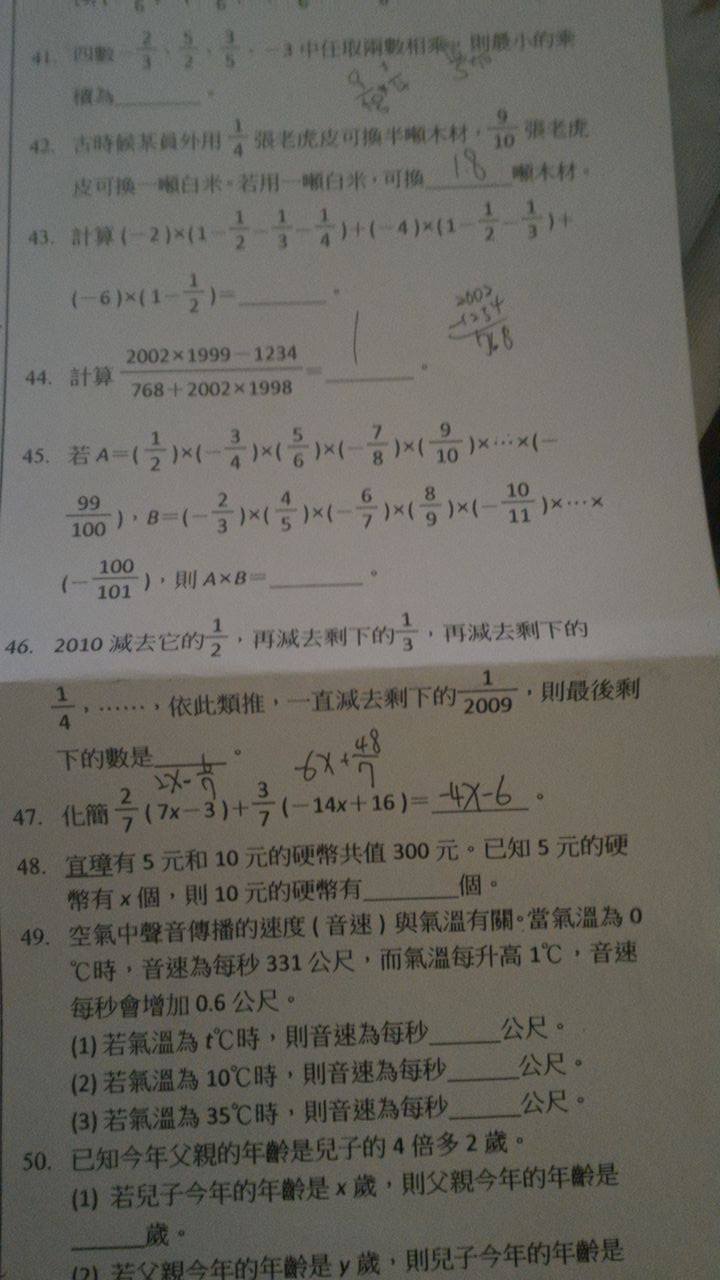 41. 四數 -2/3、5/2、3/5、-3 中任取兩數相乘,則最小的乘
積為______。
42. 古時候某員外用 1/4 張老虎皮可換半噸木材,9/10 張老虎
皮可換一噸白米。若用一噸白米,可換 18 噸木材。
43. 計算 (-2)×(1-1/2-1/3-1/4)+(-4)×(1-1/2-1/3)+
(-6)×(1-1/2)=______。
2002
-1234
768
44. 計算 (2002×1999-1234)/(768+2002×1998)= 1 。
45. 若 A=(1/2)×(-3/4)×(5/6)×(-7/8)×(9/10)×⋯×(-
99/100),B=(-2/3)×(4/5)×(-6/7)×(8/9)×(-10/11)×⋯×
(-100/101),則 A×B=______。
46. 2010 減去它的 1/2,再減去剩下的 1/3,再減去剩下的
1/4,……,依此類推,一直減去剩下的 1/2009,則最後剩
下的數是______。
2x- -6x+48/7
47. 化簡 2/7(7x-3)+3/7(-14x+16)= -4x-6 。
48. 宜璋有 5 元和 10 元的硬幣共值 300 元。已知 5 元的硬
幣有 x 個,則 10 元的硬幣有______個。
49. 空氣中聲音傳播的速度(音速)與氣溫有關。當氣溫為 0
℃時,音速為每秒 331 公尺,而氣溫每升高 1℃,音速
每秒會增加 0.6 公尺。
(1) 若氣溫為 t℃時,則音速為每秒______公尺。
(2) 若氣溫為 10℃時,則音速為每秒______公尺。
(3) 若氣溫為 35℃時,則音速為每秒______公尺。
50. 已知今年父親的年齡是兒子的 4 倍多 2 歲。
(1) 若兒子今年的年齡是 x 歲,則父親今年的年齡是
______歲。
(2) 若父親今年的年齡是 y 歲,則兒子今年的年齡是